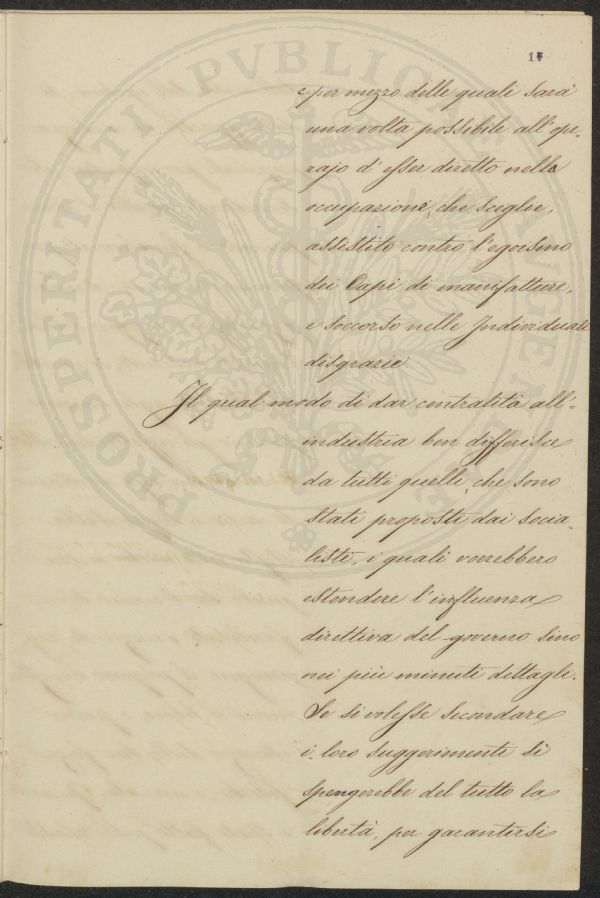 17
e per mezzo delle quali sarà
una volta possibile all'ope-
rajo d'esser diretto nella
occupazione, che sceglie,
assistito contro l'egoismo
dei Capi di manifatture,
e soccorso nelle Individuale
disgrazie
Il qual modo di dar centralità all'-
industria ben differisce
da tutti quelli, che sono
stati proposti dai socia-
listi, i quali vorrebbero
estendere l'influenza
direttiva del governo sino
nei più minuti dettagli.
Se si volesse secondare
i loro suggerimenti si
spengerebbe del tutto la
libertà, per garantirsi
PROSPERITATI PVBLICAE